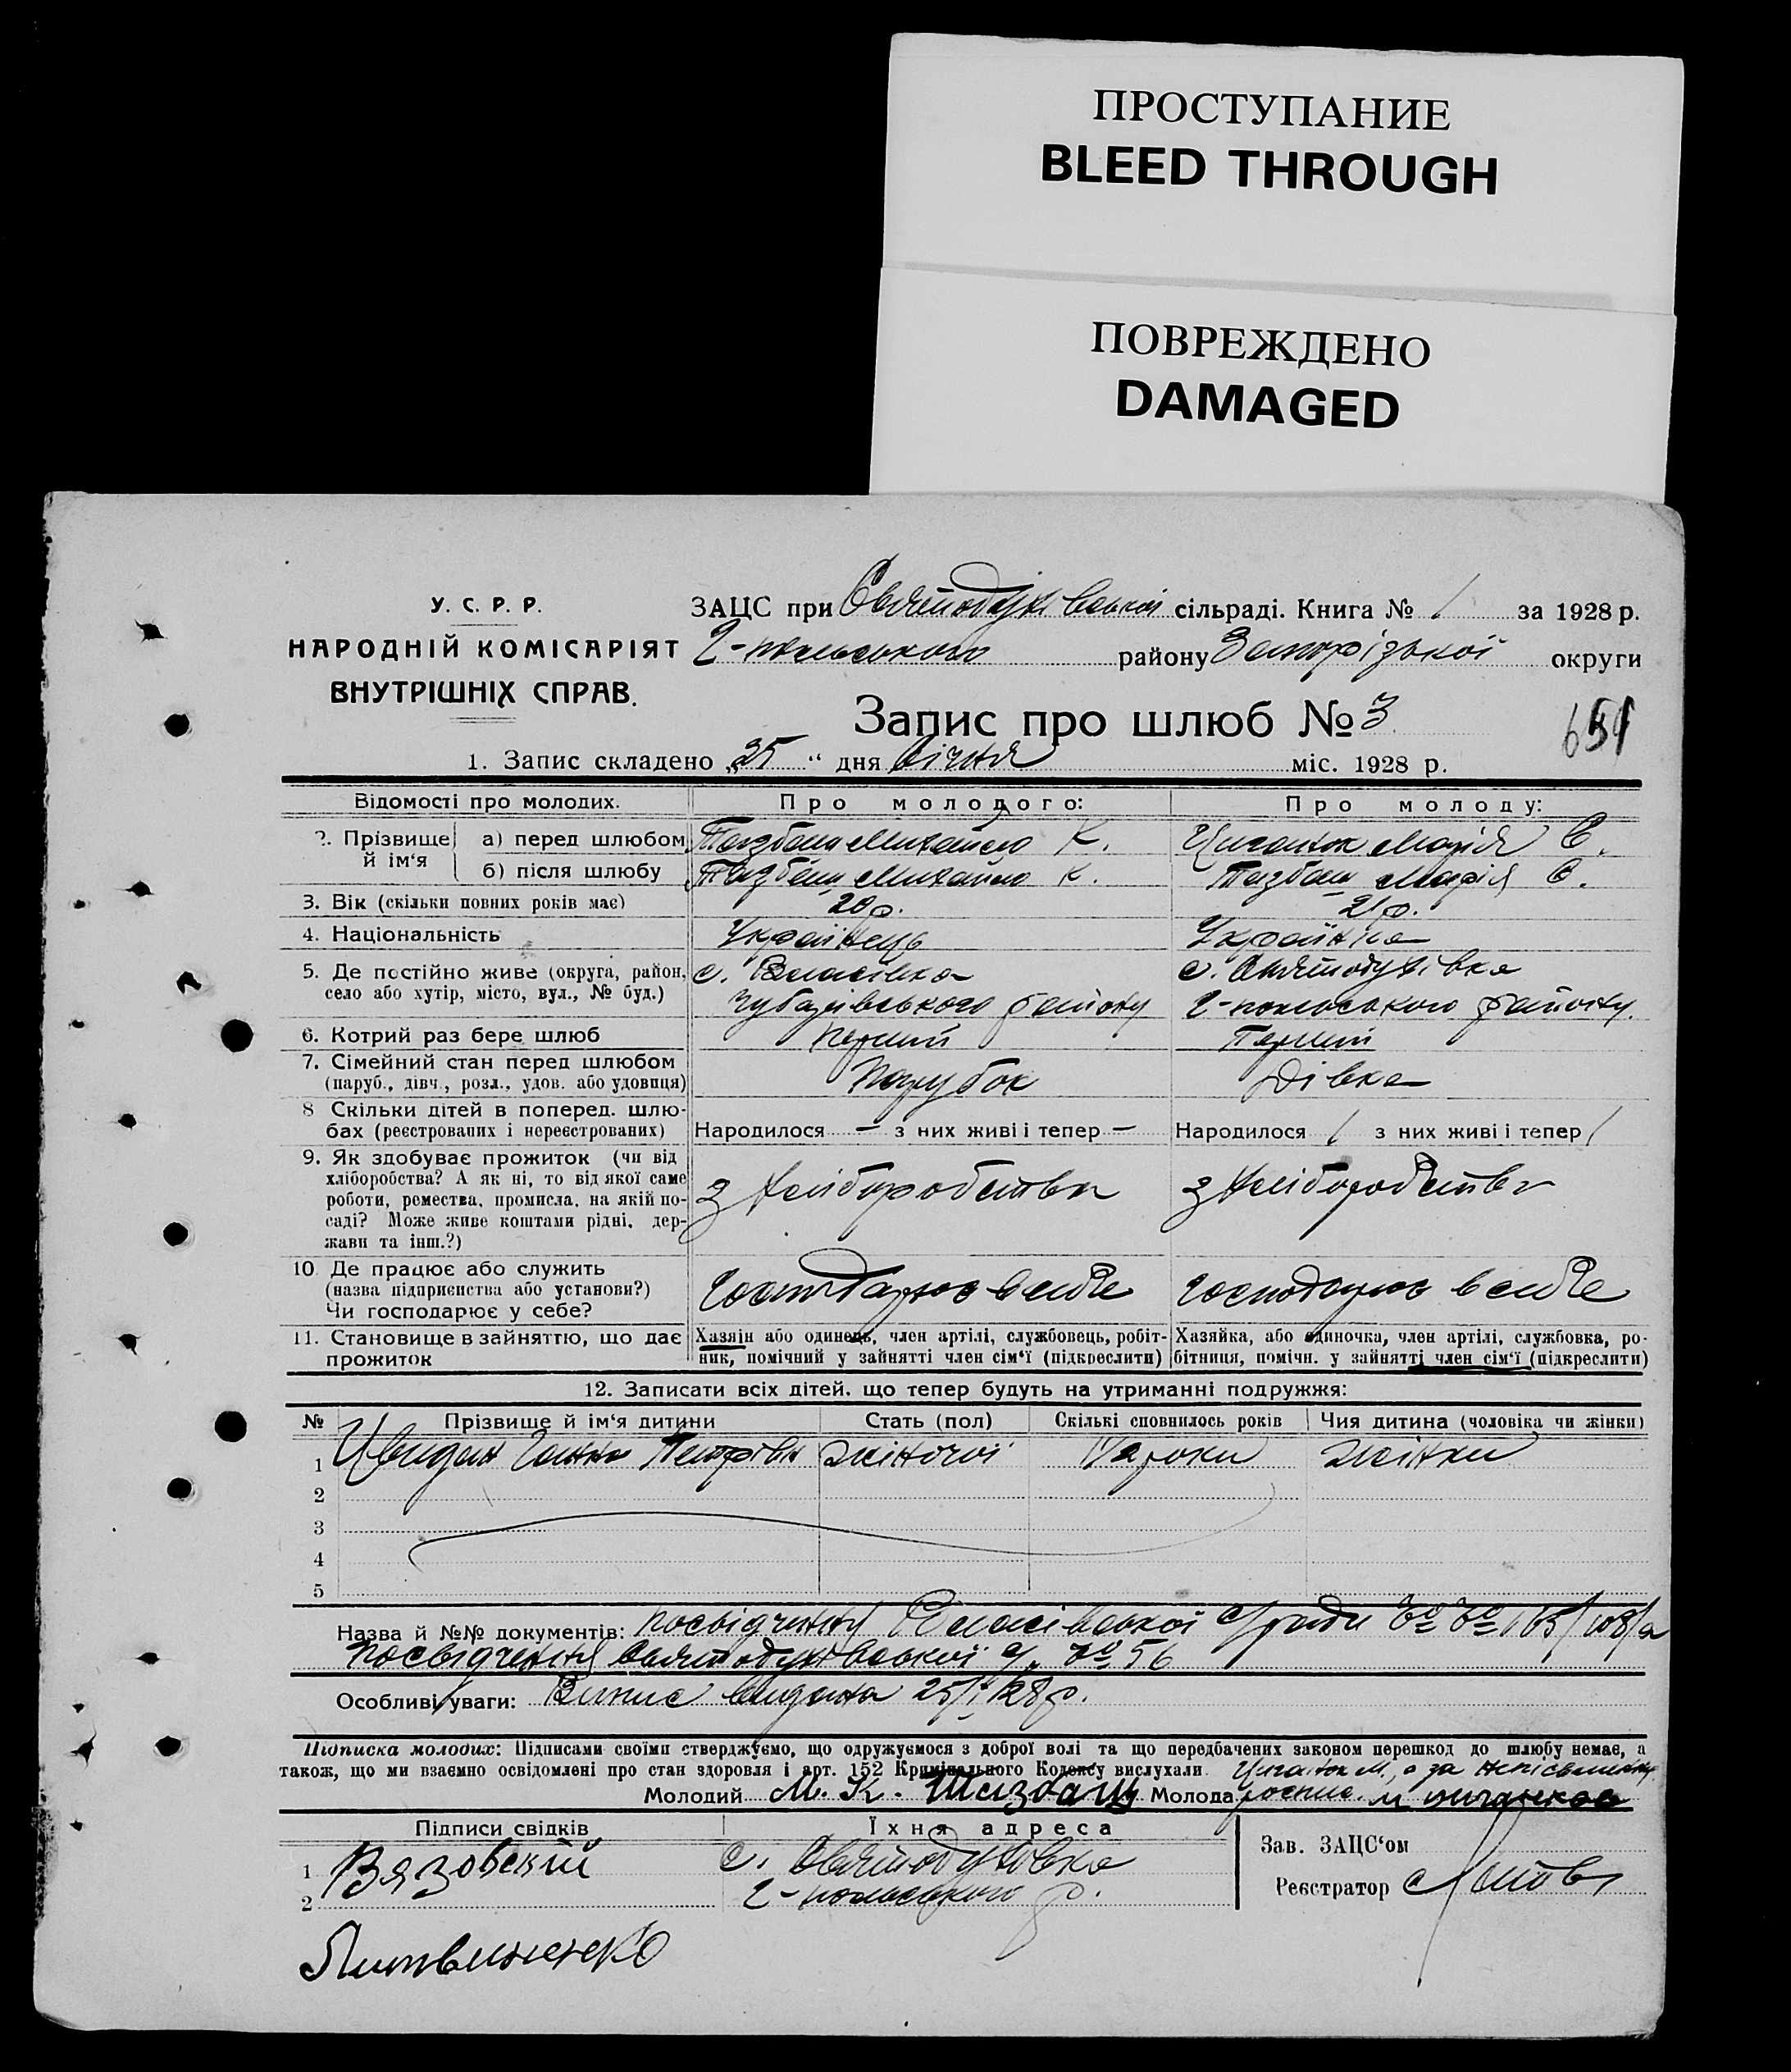 ПРОСТУПАНИЕ
BLEED THROUGH
ПОВРЕЖДЕНО
DAMAGED
У. С. Р. Р.
НАРОДНІЙ КОМІСАРІЯТ
ВНУТРІШНІХ СПРАВ.
ЗАЦС при Святодухівській сільраді. Книга № 1 за 1928 р.
району Запорізької округи
Запис про шлюб № 3
651
1. Запис складено „25“ дня Січня міс. 1928 р.
Відомості про молодих. Про молодого: Про молоду:
2. Прізвище й ім‘я а) перед шлюбом Тазбаш Михайло К. Циганок Марія С.
б) після шлюбу Тазбаш Михайло К. Тазбаш Марія С.
3. Вік (скільки повних років має) 20 р. 21 р.
4. Національність Українець Українка
5. Де постійно живе (округа, район, с. Власівка с. Святодухівка
село або хутір, місто, вул., № буд.) району району.
6. Котрий раз бере шлюб Перший Перший
7. Сімейний стан перед шлюбом
(паруб., дівч., розл., удов. або удовиця) Парубок Дівка
8 Скільки дітей в поперед. шлю-
бах (реєстрованих і нереєстрованих) Народилося — з них живі і тепер — Народилося / з них живі і тепер /
9. Як здобуває прожиток (чи від
хліборобства? А як ні, то від якої саме
роботи, ремества, промисла, на якій по- з хліборобства з хліборобства
саді? Може живе коштами рідні, дер-
жави та інш.?)
10 Де працює або служить
(назва підприємства або установи?) господарює в себе господарює в себе
Чи господарює у себе?
11. Становище в зайняттю, що дає Хазяін або одинець, член артілі, службовець, робіт- Хазяйка, або одиночка, член артілі, службовка, ро-
прожиток ник, помічний у зайнятті член сім‘ї (підкреслити) бітниця, помічн. у зайнятті член сім‘ї (підкреслити)
12. Записати всіх дітей, що тепер будуть на утриманні подружжя:
№ Прізвище й ім‘я дитини Стать (пол) Скількі сповнилось років Чия дитина (чоловіка чи жінки)
1 Ганна Петрівн жіночої роки жінки
2
3
4
5
Назва й №№ документів: посвідчення Власівської с/ради
посвідчення Святодухівської с/р. № 56
Особливі уваги: Випис видана 25/I 28 р.
Підписка молодих: Підписами своїми стверджуємо, що одружуємося з доброї волі та що передбачених законом перешкод до шлюбу немає, а
також, що ми взаємно освідомлені про стан здоровля і арт. 152 Кримінального Кодексу вислухали. Циганок М., а за
Молодий М. К. Тазбаш Молода
Підписи свідків Їхня адреса
Зав. ЗАЦС‘ом
1 Вязовский с. Святодухівка
2 р.
Реєстратор
Литвиненко